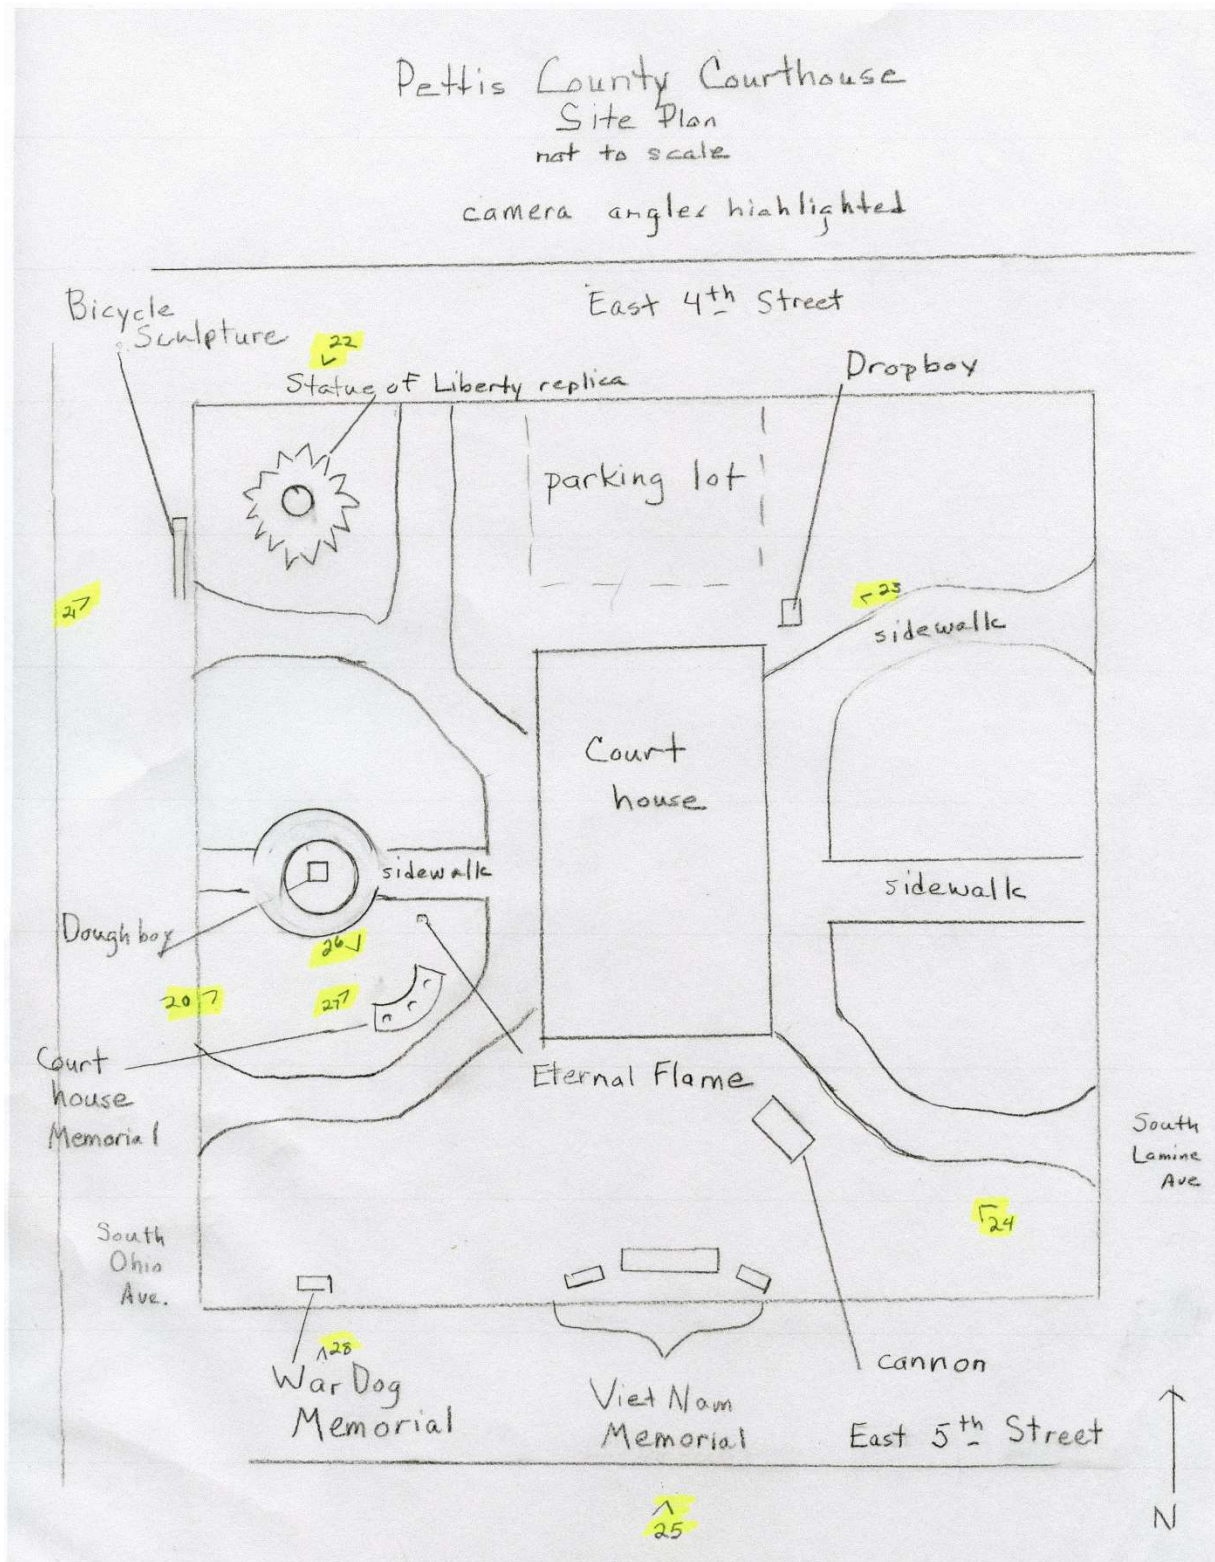 Pettis County Courthouse
Site Plan
not to scale
camera angles highlighted
East 4th Street
Bicycle
Sculpture
22
Statue of Liberty replica
Dropbox
parking lot
21
23
sidewalk
Court
house
sidewalk
sidewalk
Doughboy
26
20
27
Court
house
Memorial
Eternal Flame
South
Lamine
Ave
24
South
Ohio
Ave.
28
War Dog
Memorial
Viet Nam
Memorial
cannon
East 5th Street
25
N